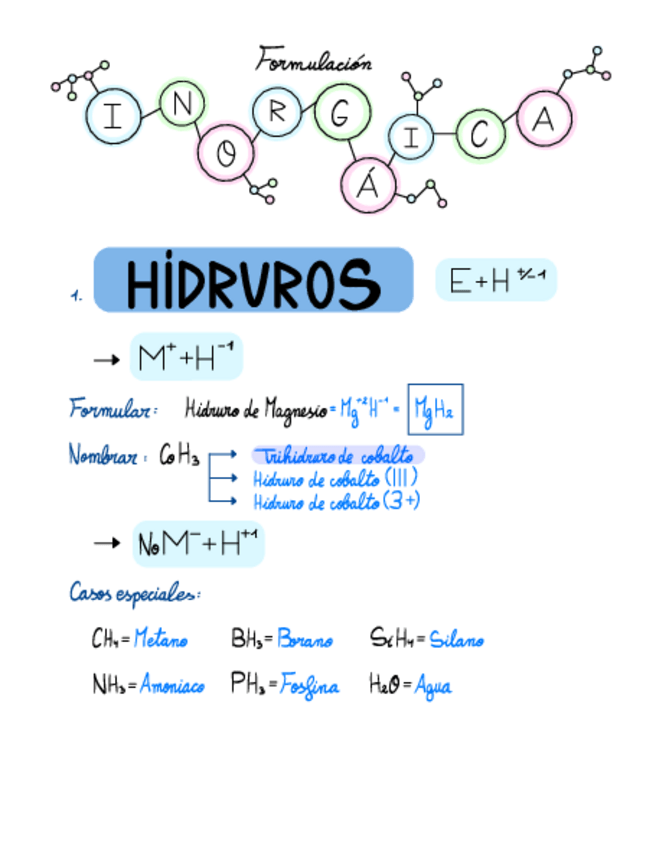 Formulación
INORGÁICA
1. HİDRUROS
E+H⁺/⁻¹
→ M⁺+H⁻¹
Formular: Hidruro de Magnesio = Mg⁺²H⁻¹ = MgH₂
Nombrar: CoH₃ → Trihidruro de cobalto
→ Hidruro de cobalto (III)
→ Hidruro de cobalto (3+)
→ NoM⁻+H⁺¹
Casos especiales:
CH₄=Metano BH₃=Borano SiH₄=Silano
NH₃=Amoniaco PH₃=Fosfina H₂O=Agua